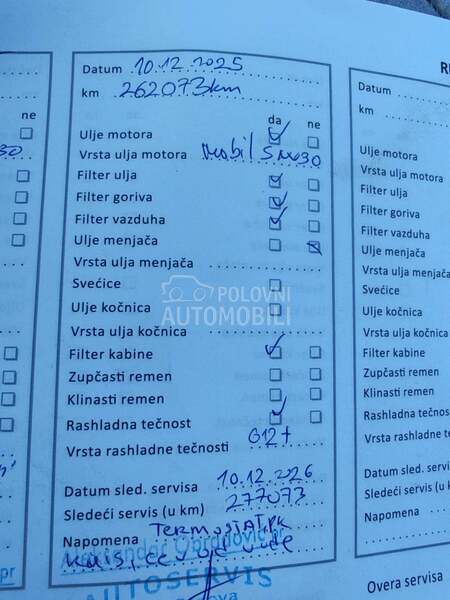 RE
Datum 10.12.2025
Datum
km 262073km
km
ne
da ne
Ulje motora
Ulje motora
Vrsta ulja motora Mobil 5W30
Vrsta ulja motora
30
Filter ulja
Filter ulja
Filter goriva
Filter goriva
Filter vazduha
Filter vazduha
Ulje menjača
Ulje menjača
Vrsta ulja menjača
Vrsta ulja menjača
Svećice
Svećice
POLOVNI
AUTOMOBILI
Ulje kočnica
Ulje kočnica
Vrsta ulja kočnica
Vrsta ulja kočnica
Filter kabine
Filter kabine
Zupčasti remen
Zupčasti remen
Klinasti remen
Klinasti remen
Rashladna tečnost
Rashladna tečnost
Vrsta rashladne tečnosti G12+
Vrsta rashladne te
Datum sled. servisa 10.12.2026
Datum sled. servisa
Sledeći servis (u km) 277073
Sledeći servis (u km)
Napomena TERMOSTAT, PK
Napomena
kais, cev od vode
Aleksandar Obradović pr
AUTOSERVIS
pr
Overa servisa